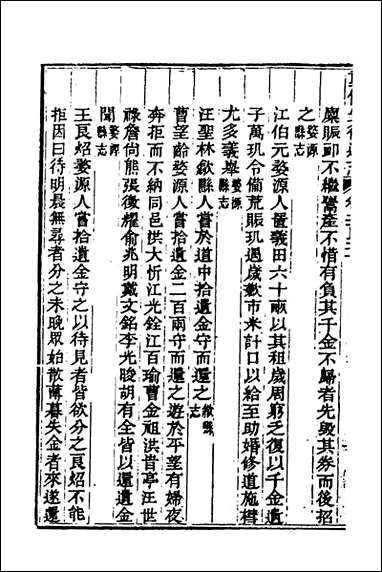 糜賑卹不繼鬻產不惜有負其千金不歸者先毀其券而後招
之婺源縣志
江伯元婺源人置義田六十畝以其租歲周窮乏復以千金遺
子萬璣令備荒賑璣遇歲歉市米計口以給至助婚修道施槥
尤多義舉婺源縣志
汪聖林歙縣人嘗於道中拾遺金守而還之歙縣志
曹望齡婺源人嘗拾遺金二百兩守而還之遊於平望有婦夜
奔拒而不納同邑洪大忻江光銓江百瑜曹金祖洪昔亭汪世
祿詹尚熊張徵耀俞兆明戴文銘李光晙胡有全皆以還遺金
聞婺源縣志
王良炤婺源人嘗拾遺金守之以待見者皆欲分之良炤不能
拒因曰待明晨無尋者分之未晚眾始散薄暮失金者來遂還